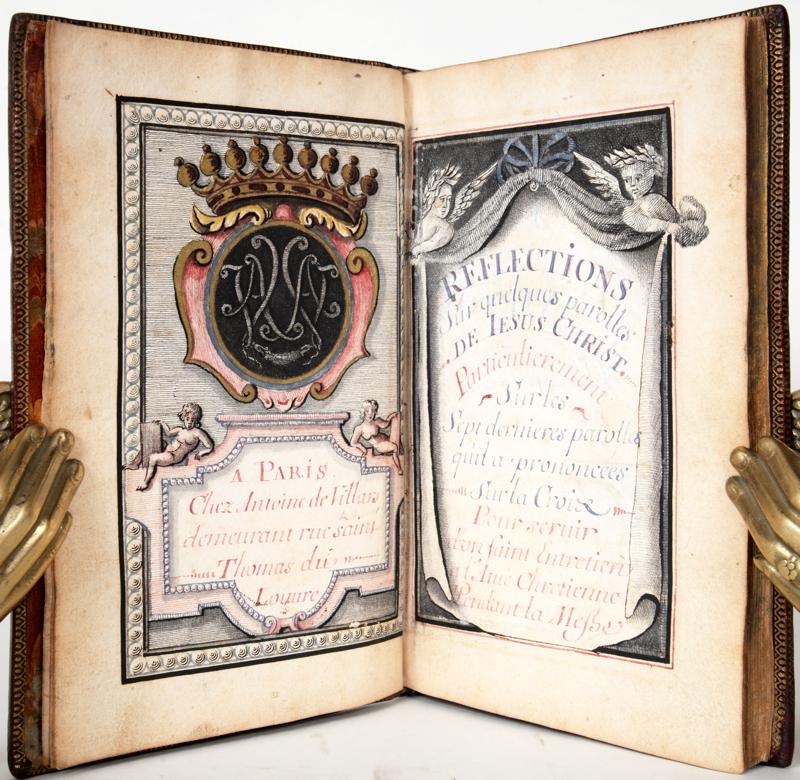 A PARIS
Chez Antoine de Villars
demeurant rue saint
Thomas du
Louure
REFLECTIONS
Sur quelques parolles
DE IESUS CHRIST.
Particulierement
Sur les
Sept dernieres parolles
quil a prononcées
Sur la Croix
Pour seruir
d'vn saint Entretien
l'Ame Chretienne
Pendant la Messe